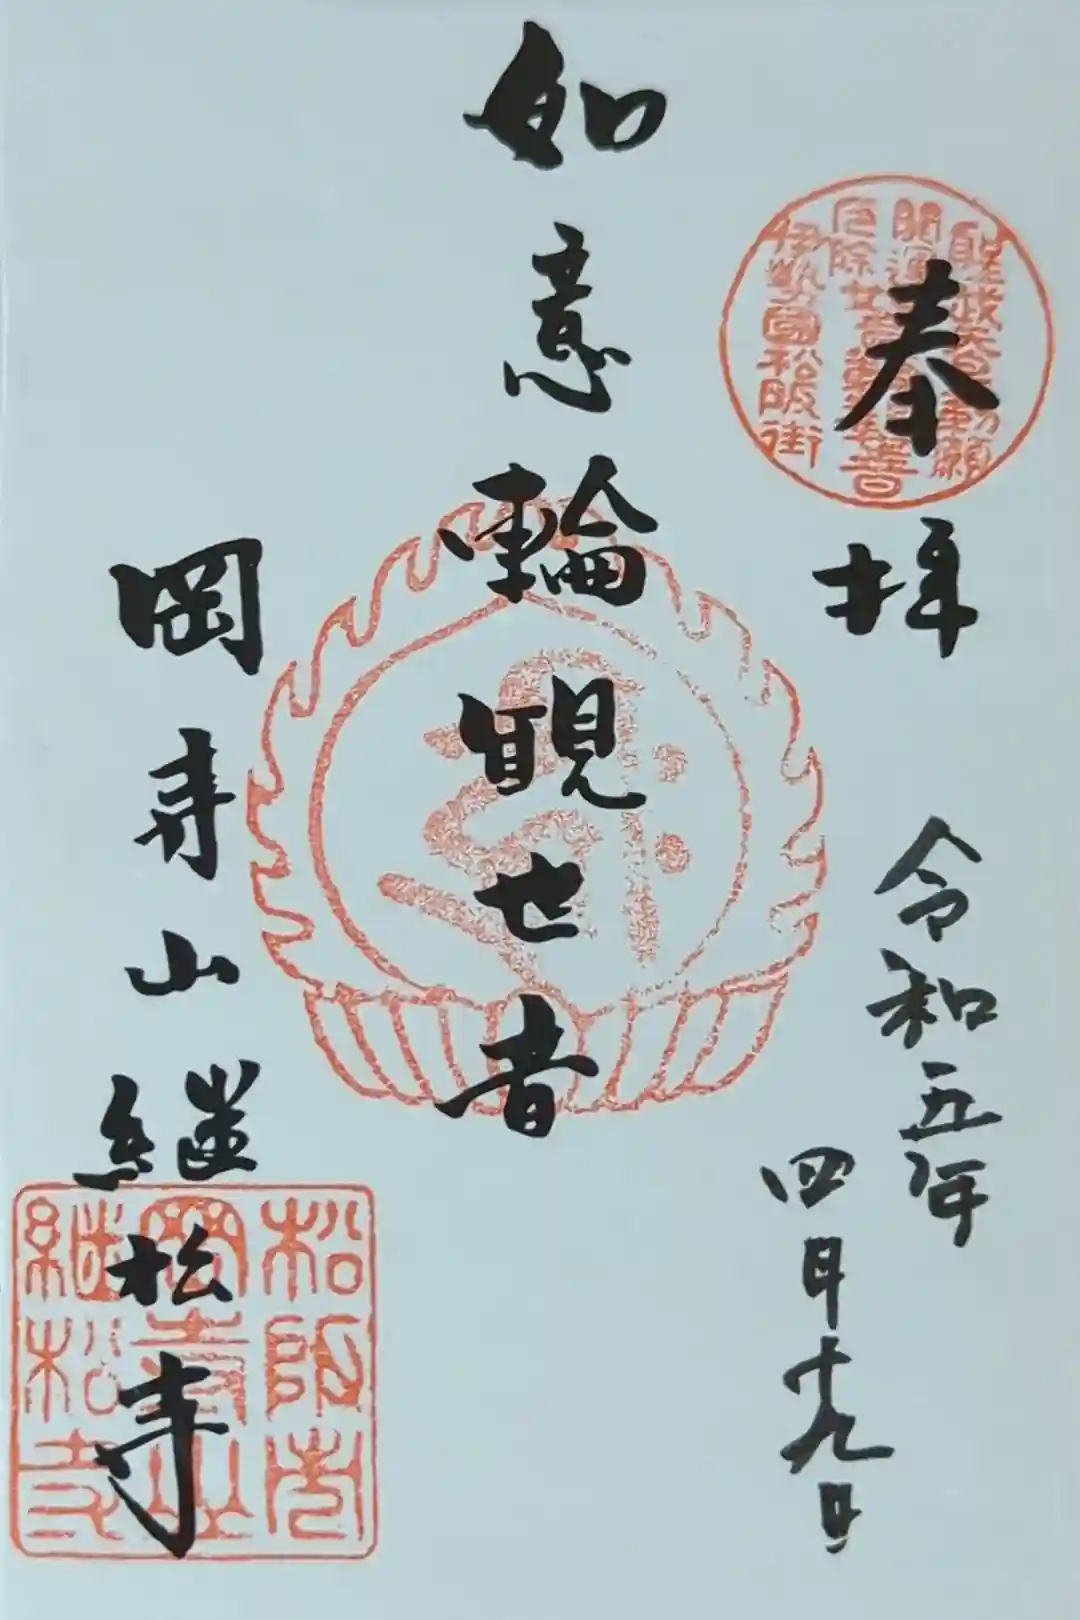 奉拝
令和五年
四月十九日
如意輪観世音
岡寺山継松寺
伊勢國松阪街
松阪市
岡寺山
継松寺